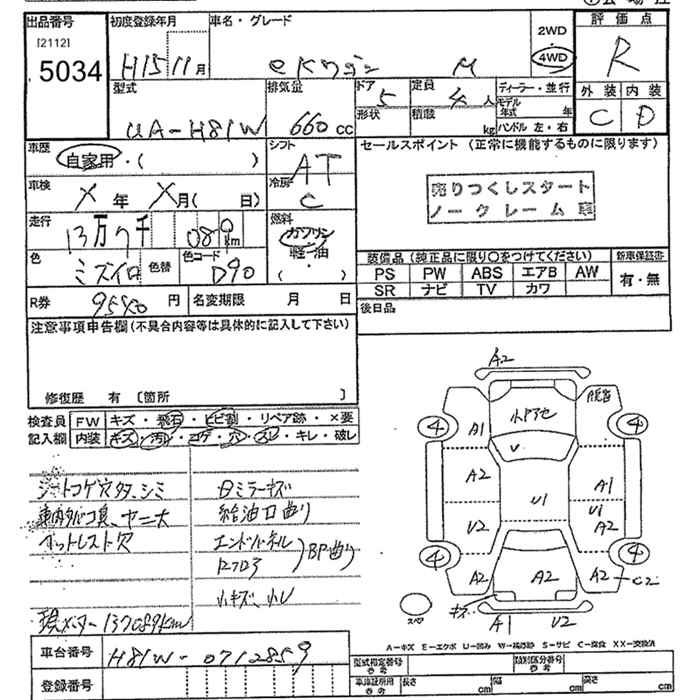 出品番号 初度登録年月 車名・グレード 2WD 4WD 評価点
[2112]
5034 H15 11月 eKワゴン M R
型式 排気量 ドア 5 定員 4人 ディーラー・並行 外装 内装
形状 積載 kg モデル年式 年 ハンドル 左・右 C D
UA-H81W 660cc
車歴 自家用・( ) シフト AT セールスポイント (正常に機能するものに限ります)
車検 X年 X月( 日) 冷房 C 売りつくしスタート
ノークレーム車
走行 13万7千 080km 燃料 ガソリン 軽油 ( ・ )
色 ミズイロ 色替 色コード D90 装備品 (純正品に限り○をつけてください) 新車保証書
PS PW ABS エアB AW 有・無
SR ナビ TV カワ
R券 9540円 名変期限 月 日 後日品
注意事項申告欄(不具合内容等は具体的に記入して下さい)
修復歴 有 〔箇所 〕
検査員 FW キズ・飛石・ヒビ割・リペア跡・×要
記入欄 内装 キズ・汚れ・コゲ・穴・スレ・キレ・破レ
シートコゲ穴 シミ
車内タバコ臭、ヤニ大
給油口曲り
エンドパネル
BP曲り
小キズ、小レ
現メーター137089km
車台番号 H81W-0712859
登録番号
A2
④ A1 小ドアセ ④
V
A2 U1 A1
U2 U1 A2
④ A2 A2 A2 C2 ④
キズ
スペア A1 U2
A-キズ E-エクボ U-凹み S-サビ C-腐食 XX-交換済
型式指定番号 参考 類別区分番号 参考
車庫証明用 参考 長さ cm 幅 cm 高さ cm